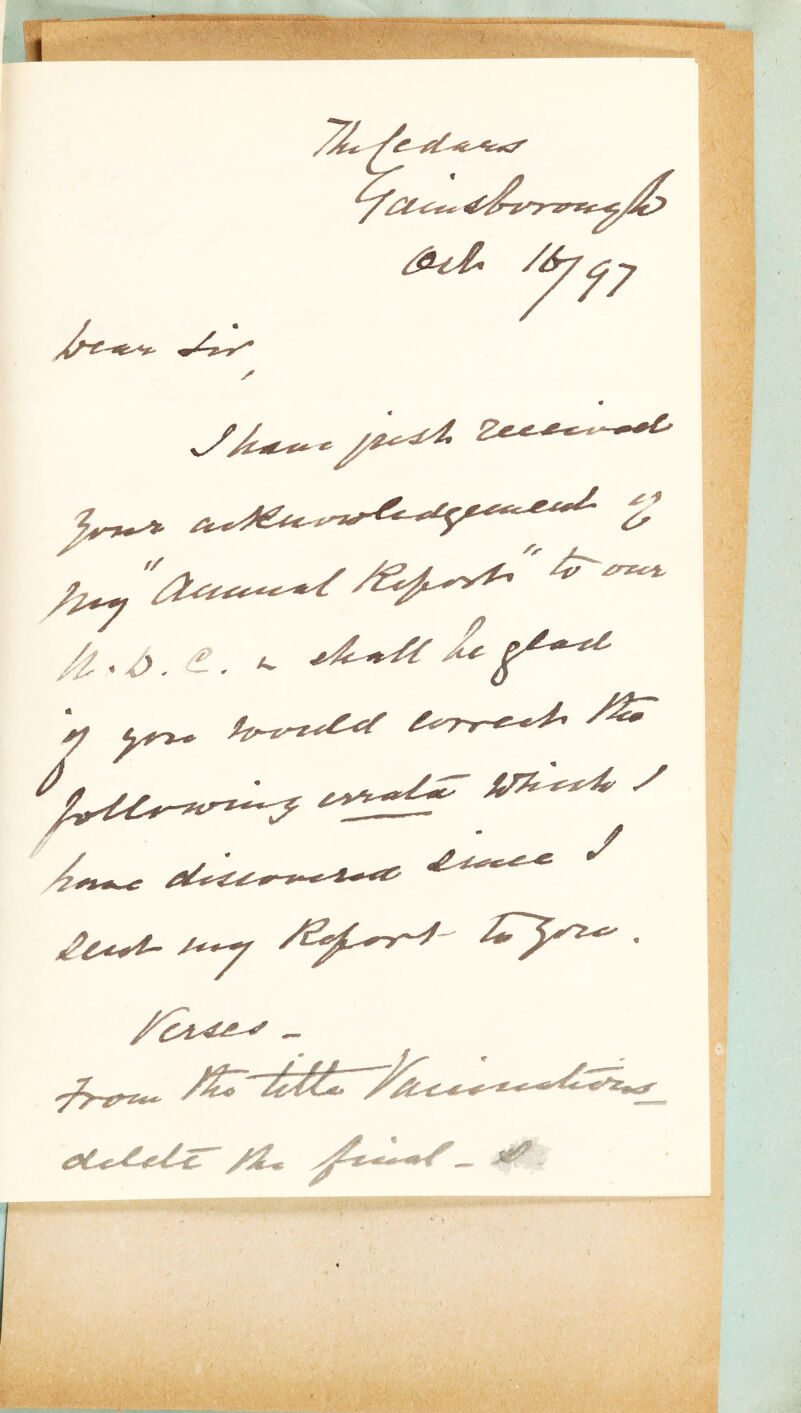 The Cedars
Gainsborough
Oct 16/97
Dear Sir,
I have just received
your acknowledgement of
my "Annual Report" to our
U.D.C. & shall be glad
if you would correct the
following errata which I
have discovered since I
sent my Report to you.
Verses -
From the title Vaccinations
delete the final - s